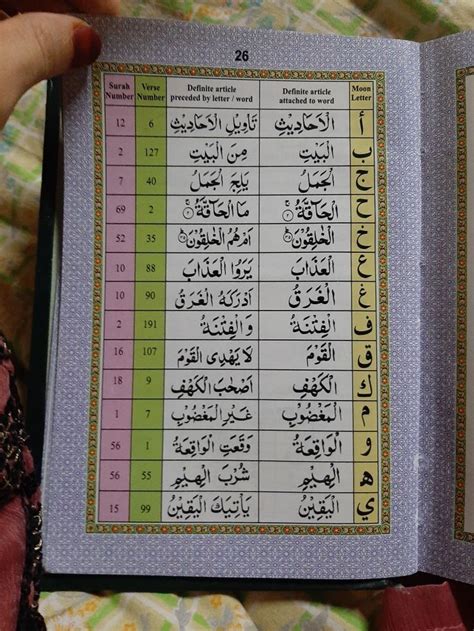 26
Surah Number Verse Number Definite article preceded by letter / word Definite article attached to word Moon Letter
12 6 تَاْوِيْلِ الْاَحَادِيْثِ الْاَحَادِيْثِ أ
2 127 مِنَ الْبَيْتِ الْبَيْتِ ب
7 40 يَلِجَ الْجَمَلُ الْجَمَلُ ج
69 2 مَا الْحَآقَّةُ ۚ اَلْحَآقَّةُ ۙ ح
52 35 اَمْ هُمُ الْخٰلِقُوْنَ الْخٰلِقُوْنَ خ
10 88 يَرَوُا الْعَذَابَ الْعَذَابَ ع
10 90 اَدْرَكَهُ الْغَرَقُ الْغَرَقُ غ
2 191 وَالْفِتْنَةُ الْفِتْنَةُ ف
16 107 لَا يَهْدِى الْقَوْمَ الْقَوْمَ ق
18 9 اَصْحٰبَ الْكَهْفِ الْكَهْفِ ك
1 7 غَيْرِ الْمَغْضُوْبِ الْمَغْضُوْبِ م
56 1 وَقَعَتِ الْوَاقِعَةُ الْوَاقِعَةُ و
56 55 شُرْبَ الْهِيْمِ الْهِيْمِ ه
15 99 يَاْتِيَكَ الْيَقِيْنُ الْيَقِيْنُ ي